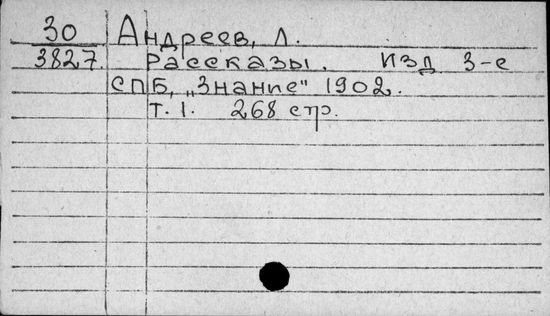 30 Андреев, Л.
3827. Рассказы. Изд 3-е
СПБ, „Знание" 1902.
Т. 1. 268 стр.